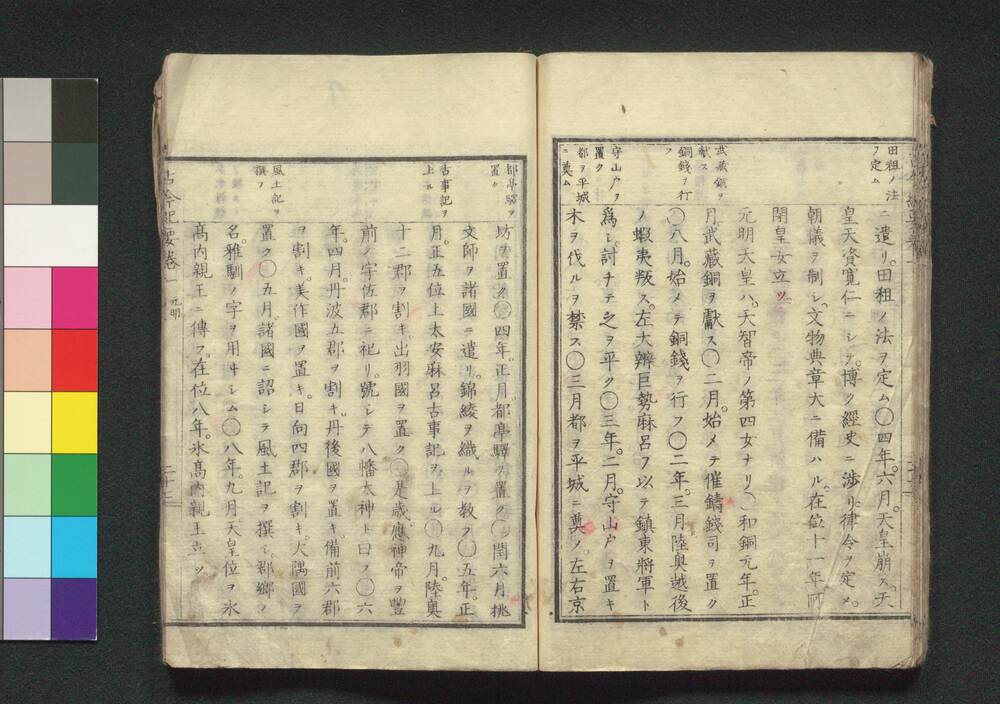 田租ノ法
ヲ定ム
武藏銅ヲ
獻ス
銅錢ヲ行
フ
守山戸ヲ
置ク
都ヲ平城
ニ奠ム
ニ遣リ。田租ノ法ヲ定ム〇四年。六月。天皇崩ス。天
皇天資寬仁ニシテ。博ク經史ニ渉リ。律令ヲ定メ。
朝儀ヲ制シ。文物典章大ニ備ハル。在位十一年阿
閇皇女立ツ。
元明天皇ハ。天智帝ノ第四女ナリ〇和銅元年。正
月。武藏銅ヲ獻ス〇二月。始メテ催鑄錢司ヲ置ク
〇八月。始メテ銅錢ヲ行フ〇二年。三月陸奥越後
ノ蝦夷叛ス。左大辨巨勢麻呂ヲ以テ鎮東將軍ト
爲シ。討チテ之ヲ平ク〇三年。二月。守山戸ヲ置キ
木ヲ伐ルヲ禁ス〇三月都ヲ平城ニ奠メ。左右京
都亭驛ヲ
置ク
古事記ヲ
上ル
風土記ヲ
撰フ
坊ヲ置ク〇四年。正月都亭驛ヲ置ク〇閏六月挑
文師ヲ諸國ニ遣リ。錦綾ヲ織ルヲ教フ〇五年。正
月。正五位上太安麻呂古事記ヲ上ル〇九月。陸奥
十二郡ヲ割キ出羽國ヲ置ク〇是歳。應神帝ヲ豐
前ノ宇佐郡ニ祀リ。號シテ八幡太神ト曰フ〇六
年。四月。丹波五郡ヲ割キ。丹後國ヲ置キ。備前六郡
ヲ割キ。美作國ヲ置キ。日向四郡ヲ割キ。大隅國ヲ
置ク〇五月諸國ニ詔シテ風土記ヲ撰シ。郡郷ノ
名。雅馴ノ字ヲ用井シム〇八年。九月。天皇位ヲ氷
高内親王ニ傳フ。在位八年。氷高内親王立ツ。
古今紀要卷一
元明
二十二